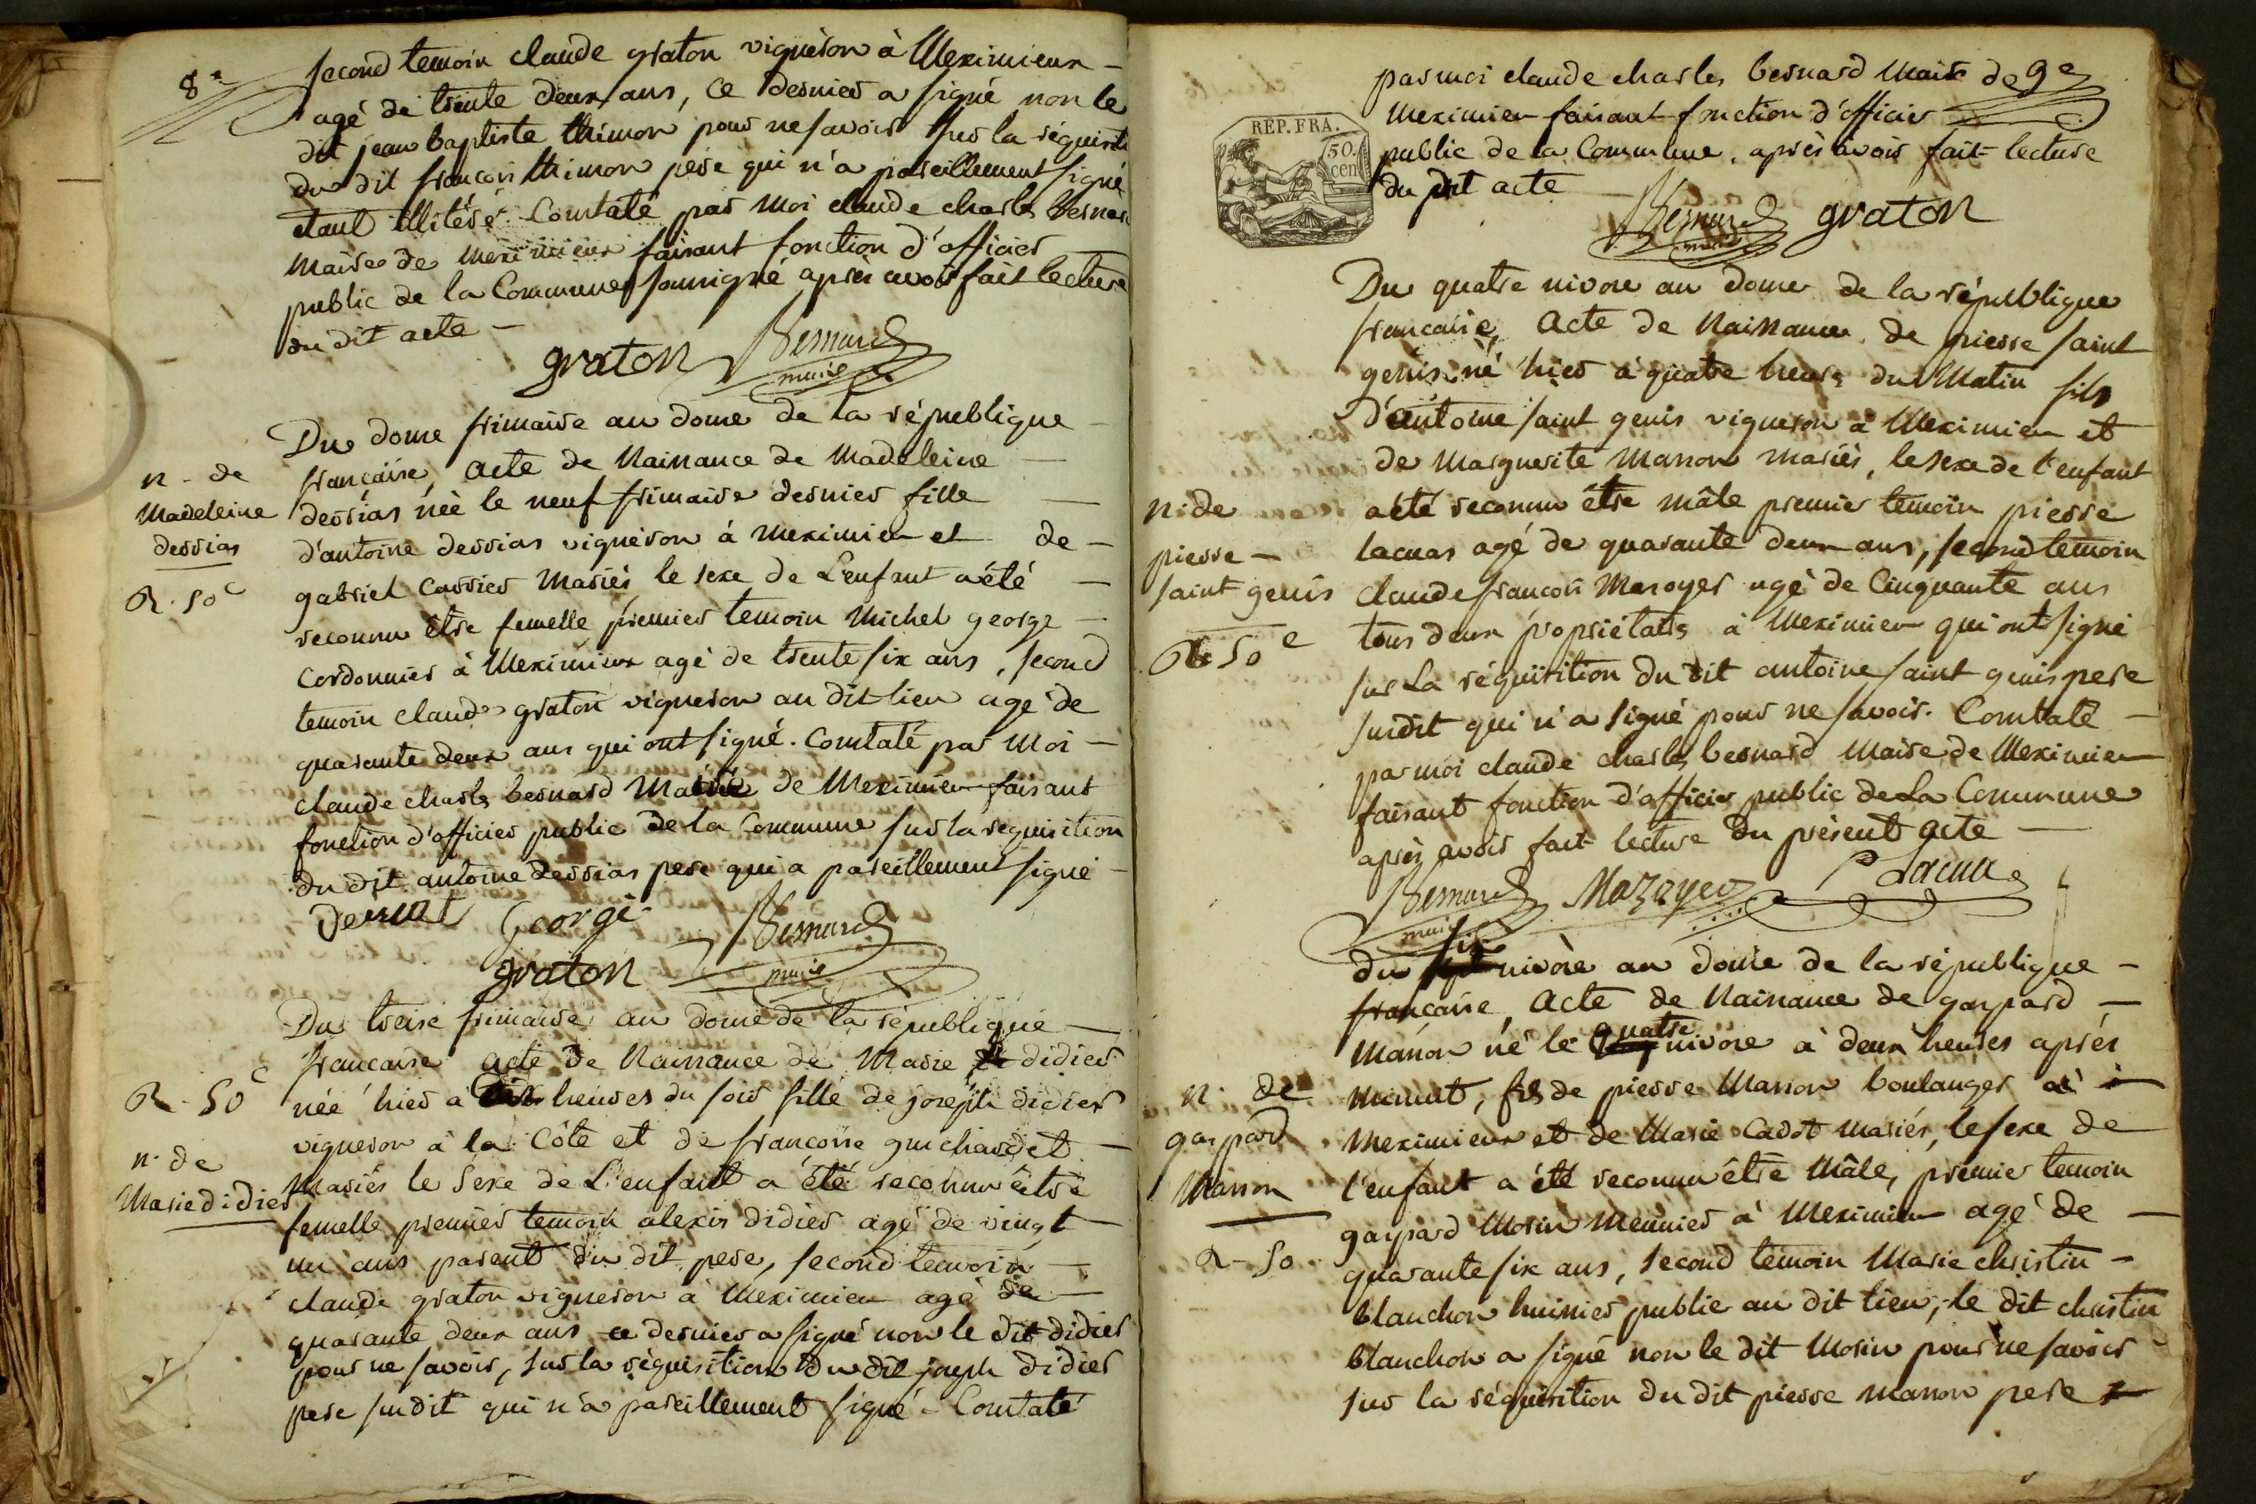 8e
second temoin claude graton vigneron à Meximieux
agé de trente deux ans, ce dernier a signé non le
dit jean baptiste thimon pour ne savoir sur la réquisiti
du dit francois thimon pere qui n'a pareillement signé
etant illiteré. Constaté par moi claude charles Bernard
Maire de meximieux faisant fonction d'officier
public de la Commune soussigné après avoir fait lecture
du dit acte —
graton Bernard
maire
Du douze frimaire an douze de la république
française, acte de Naissance de Madeleine
derrias née le neuf frimaire dernier fille
d'antoine derrias vigneron à meximieu et de
gabriel carrier Mariés le sexe de L'enfant a été
reconnu être femelle premier temoin Michel george
cordonnier à Meximieux agé de trente six ans, second
temoin claude graton vigneron au dit lieu agé de
quarante deux ans qui ont signé. constaté par Moi
claude charles bernard Maire de Meximieu faisant
fonction d'officier public de la Commune sur la requisition
du dit antoine derrias pere qui a pareillement signé
n. de
Madeleine
derrias
R. 50c
George Bernard
graton maire
Du treize frimaire an douze de la république
française acte de Naissance de Marie didier
née hier à heures du soir fille de joseph didier
vigneron à la Côte et de françoise guichardet
Mariés le Sexe de L'enfant a été reconnu être
femelle premier temoin alexis didier agé de vingt
un ans parent du dit pere, second temoin
claude graton vigneron à Meximieu agé de
quarante deux ans ce dernier a signé non le dit didier
pour ne savoir, sur la réquisition du dit joseph didier
pere susdit qui n'a pareillement signé. Constaté
R. 50c
n. de
Marie didier
par moi claude charles bernard Maire de
9e
Meximieu faisant fonction d'officier
public de la Commune, après avoir fait lecture
du dit acte
REP. FRA.
50.
cen
Bernard graton
maire
Du quatre nivose an douze de la république
française, acte de Naissance de pierre saint
genis né hier à quatre heures du Matin fils
d'antoine saint genis vigneron à Meximieu et
de Marguerite Manon mariés, le sexe de l'enfant
a été reconnu être mâle premier temoin pierre
lacuas agé de quarante deux ans, second temoin
claude francois Mazoyer agé de Cinquante ans
tous deux propriétaires à Meximieu qui ont signé
sur La réquisition du dit antoine saint genis pere
susdit qui n'a signé pour ne savoir. Constaté
par moi claude charles bernard Maire de Meximieu
faisant fonction d'officier public de La Commune
après avoir fait lecture du présent acte
n. de
pierre
saint genis
R 50c
Bernard Mazoyer P Lacua
maire
du six nivose an douze de la république
française, acte de Naissance de gaspard
Manon né le quatre nivose à deux heures après
minuit, fils de pierre Manon boulanger à
Meximieux et de Marie Cadot mariés, le sexe de
l'enfant a été reconnu être Mâle, premier temoin
gaspard Morin Meunier à Meximieu agé de
quarante six ans, second temoin Marie christin
blanchon huissier public au dit lieu, le dit christin
blanchon a signé non le dit Morin pour ne savoir
sur la réquisition du dit pierre manon pere
n. de
gaspard
Manon
R. 50